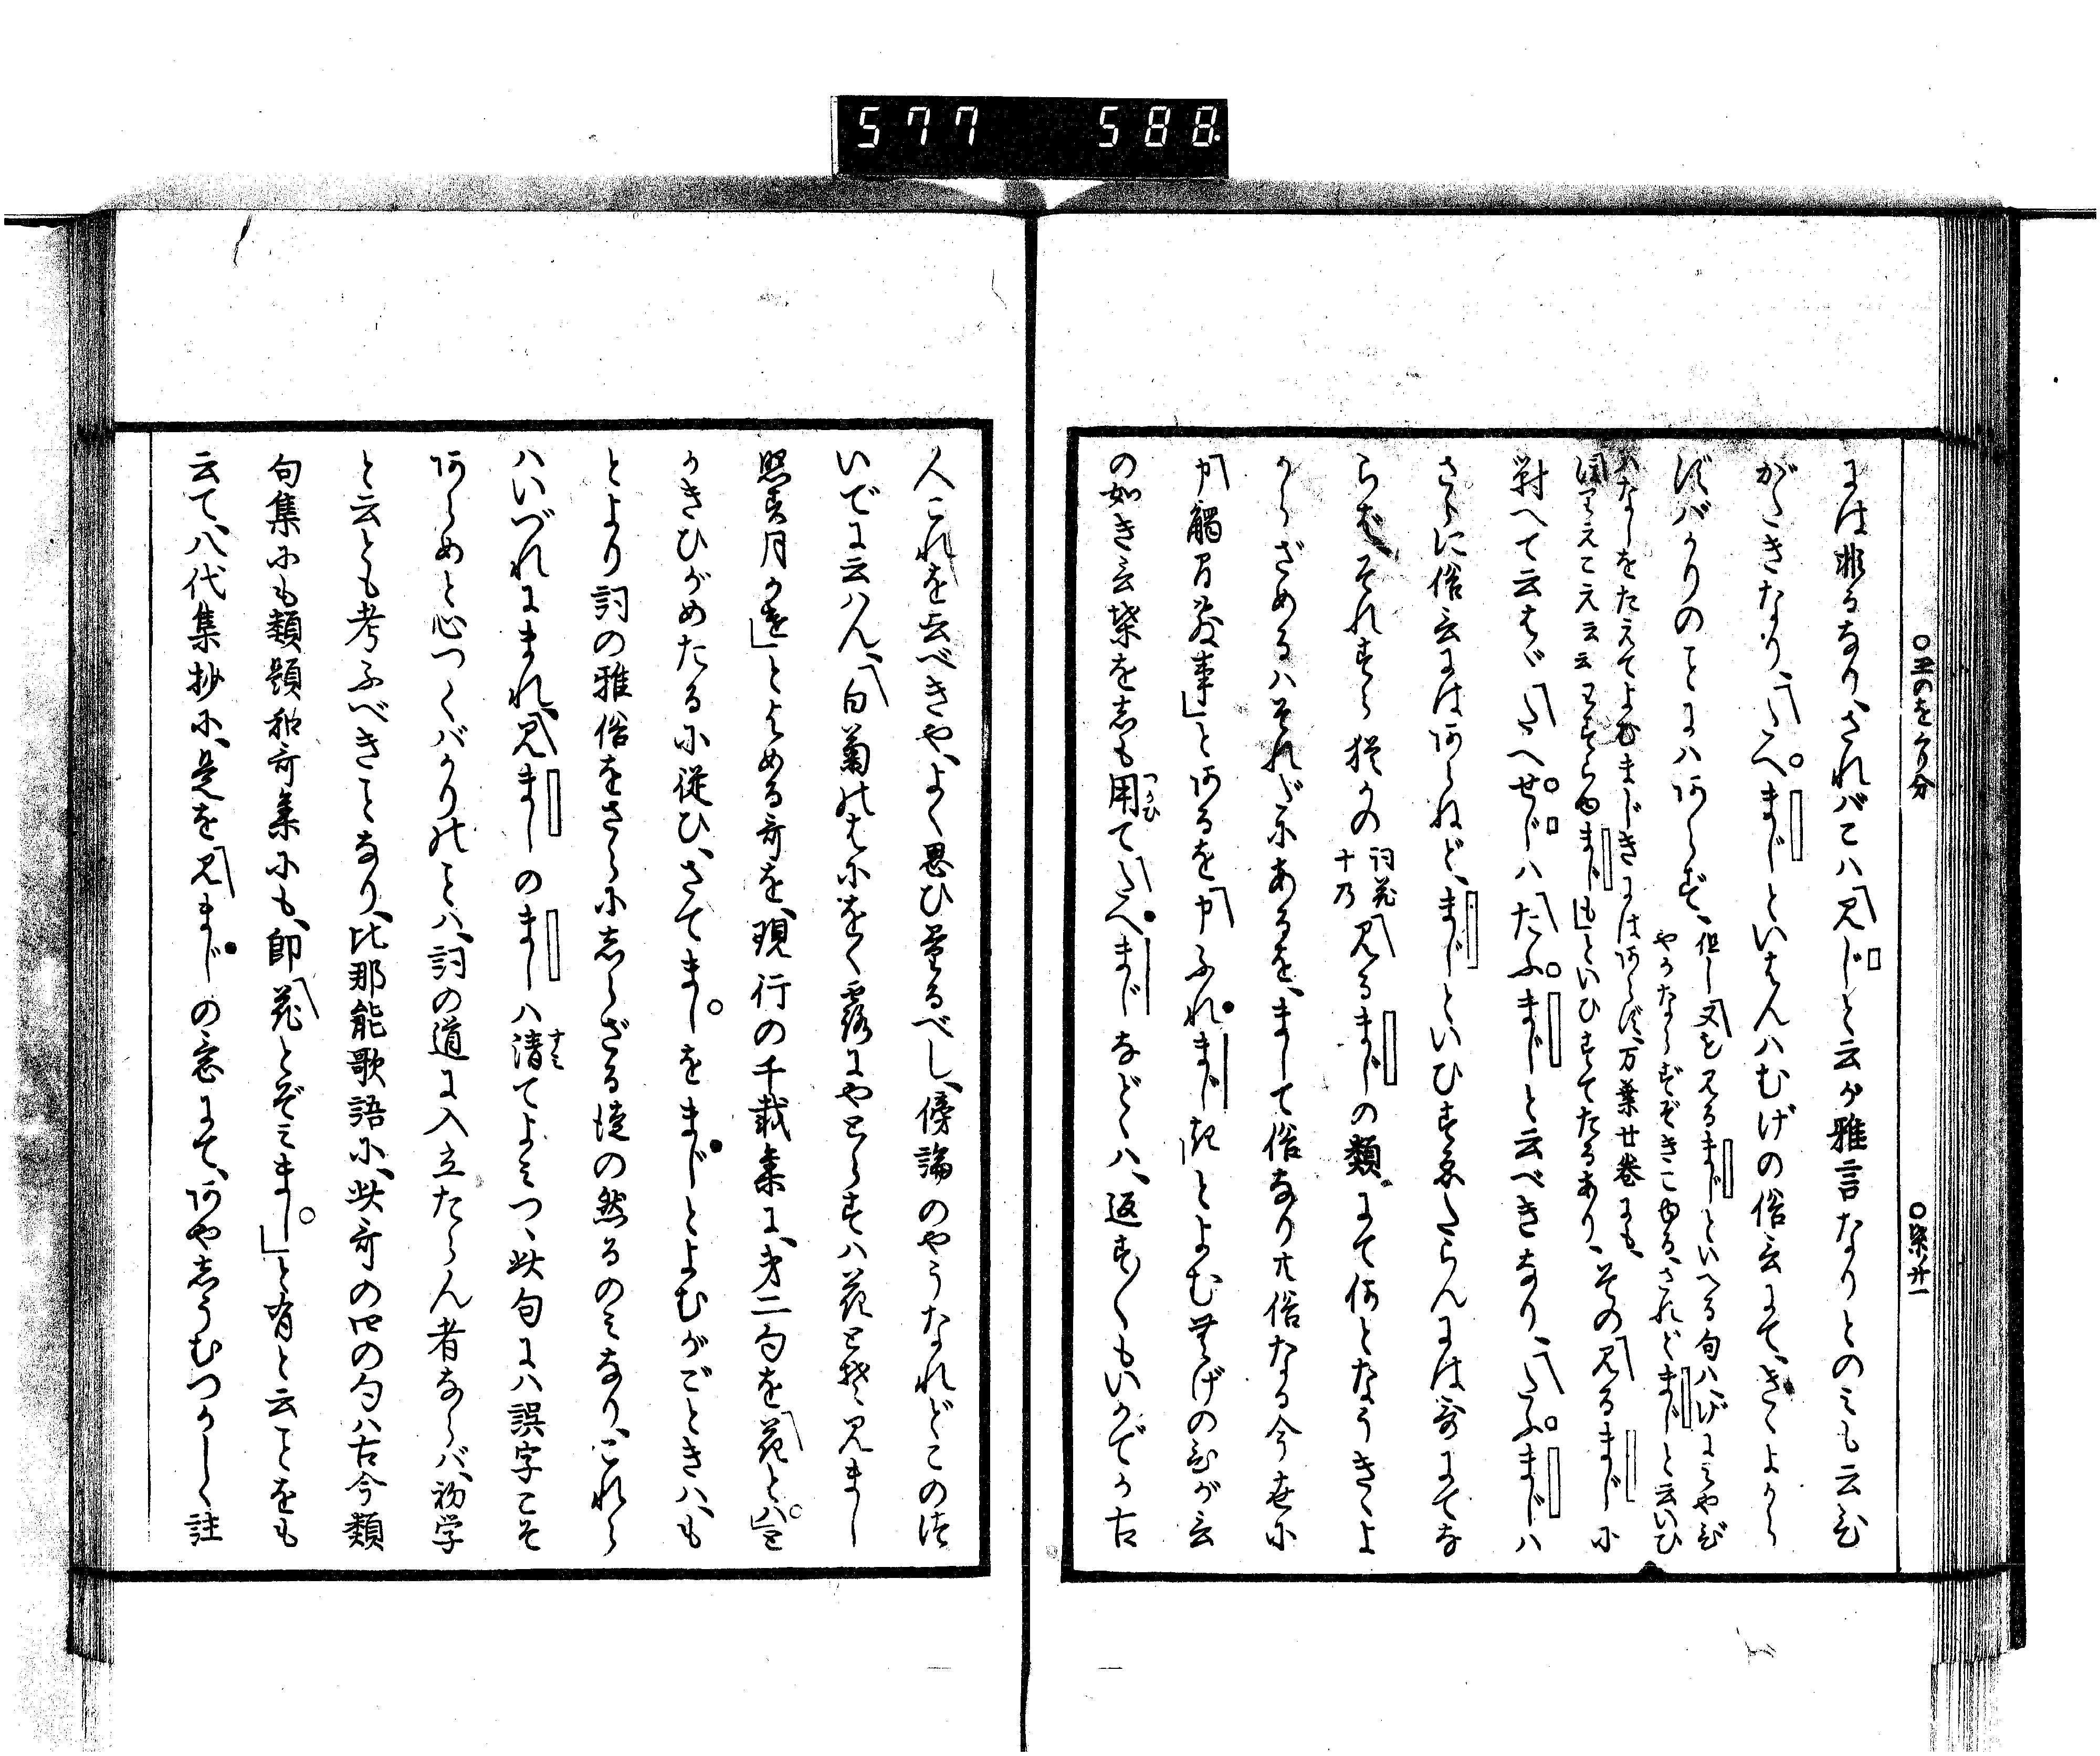 577 588
○玉のを くり分 ○柴ノ廿一
には非るなり、されバこハ見じと云が雅言なりとのミも云ひ
がたきなり、たへまじといはんハむげの俗言にて、きゝよから
ずバかりのことにハあらず、但し又も見るまじといへる句ハげにミやび
やかならずぞきこゆる、されどまじと云ひ
ハなしをたえてよむまじきにはあらず、万葉廿巻にも、
云云わすらゆまじもといひすてたるあり、その見るまじに
対へて云はゞたへせじハたふまじと云べきなり、たふまじハ
さらに俗言にはあらねど、まじといひすゑたらんには哥にてな
らはそれすら猶かの詞花十乃見るまじの類にて何となうきゝよ
からざめるハそれだにあるを、まして俗なりけ俗なる今世に
可觸有事」とあるを可ふれまじき」とよむむげのひが言
の如き言葉をしも用てたへまじなどハ、返す〲もいかでか古
人これを云べきや、よく思ひ量るべし、傍論のやうなれどこのつ
いでに云ハん、白菊のはにをく露にやどらずハ花とぞ見まし
照す月かげ」とよめる哥を、現行の千載集に、第二句を花とハ」と
かきひがめたるに従ひ、さてましをまじとよむがごときハ、も
とより詞の雅俗をさらにしらざる徒の然るのミなり、これら
ハいづれにまれ、見ましのましハ清てよミつ、此句にハ誤字こそ
あらめと心つくバかりのことハ、詞の道に入立たらん者ならバ、初学
と云とも考ふべきことなり、比那能歌語に、此哥の四の句ハ古今類
句集にも類題和哥集にも、即花とぞミまし」と有と云ことをも
云て、八代集抄に、是を見まじの意にて、あやしうむつかしく註